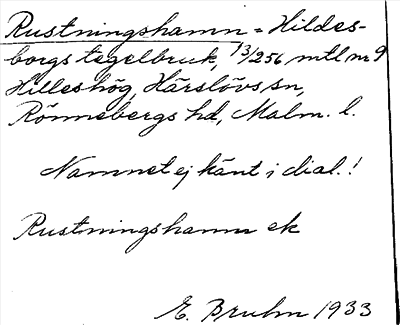 Rustningshamn = Hildes-
borgs tegelbruk, 13/256 mtl nr 9
Hilleshög, Härslövs sn,
Rönnebergs hd, Malm. l.
Namnet ej känt i dial.!
Rustningshamn ek
E. Bruhn 1933